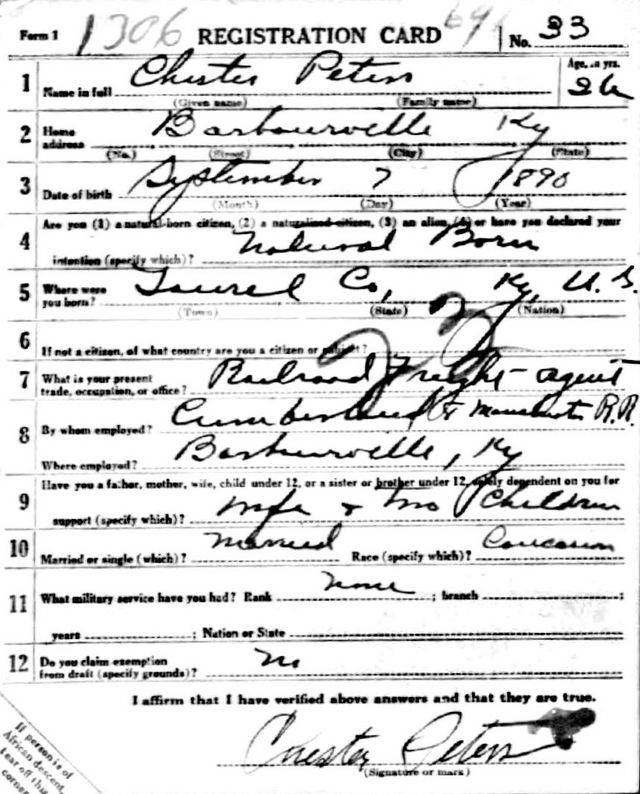 Form 1 1306 REGISTRATION CARD No. 33
1 Name in full Chester Peters Age, in yrs. 26
(Given name) (Family name)
2 Home address Barbourville Ky
(No.) (Street) (City) (State)
3 Date of birth September 7 1890
(Month) (Day) (Year)
4 Are you (1) a natural-born citizen, (2) a naturalized citizen, (3) an alien, (4) or have you declared your
intention (specify which)? Natural Born
5 Where were you born? Laurel Co, Ky, U.S.
(Town) (State) (Nation)
6 If not a citizen, of what country are you a citizen or subject?
7 What is your present trade, occupation, or office? Railroad Freight agent
8 By whom employed? Cumberland & R.R.
Where employed? Barbourville, Ky
9 Have you a father, mother, wife, child under 12, or a sister or brother under 12, solely dependent on you for
support (specify which)? Wife & two Children
10 Married or single (which)? Married Race (specify which)? Caucasian
11 What military service have you had? Rank None ; branch ;
years ; Nation or State
12 Do you claim exemption from draft (specify grounds)? No
I affirm that I have verified above answers and that they are true.
Chester Peters
(Signature or mark)
If person is of
African descent,
tear off this
corner